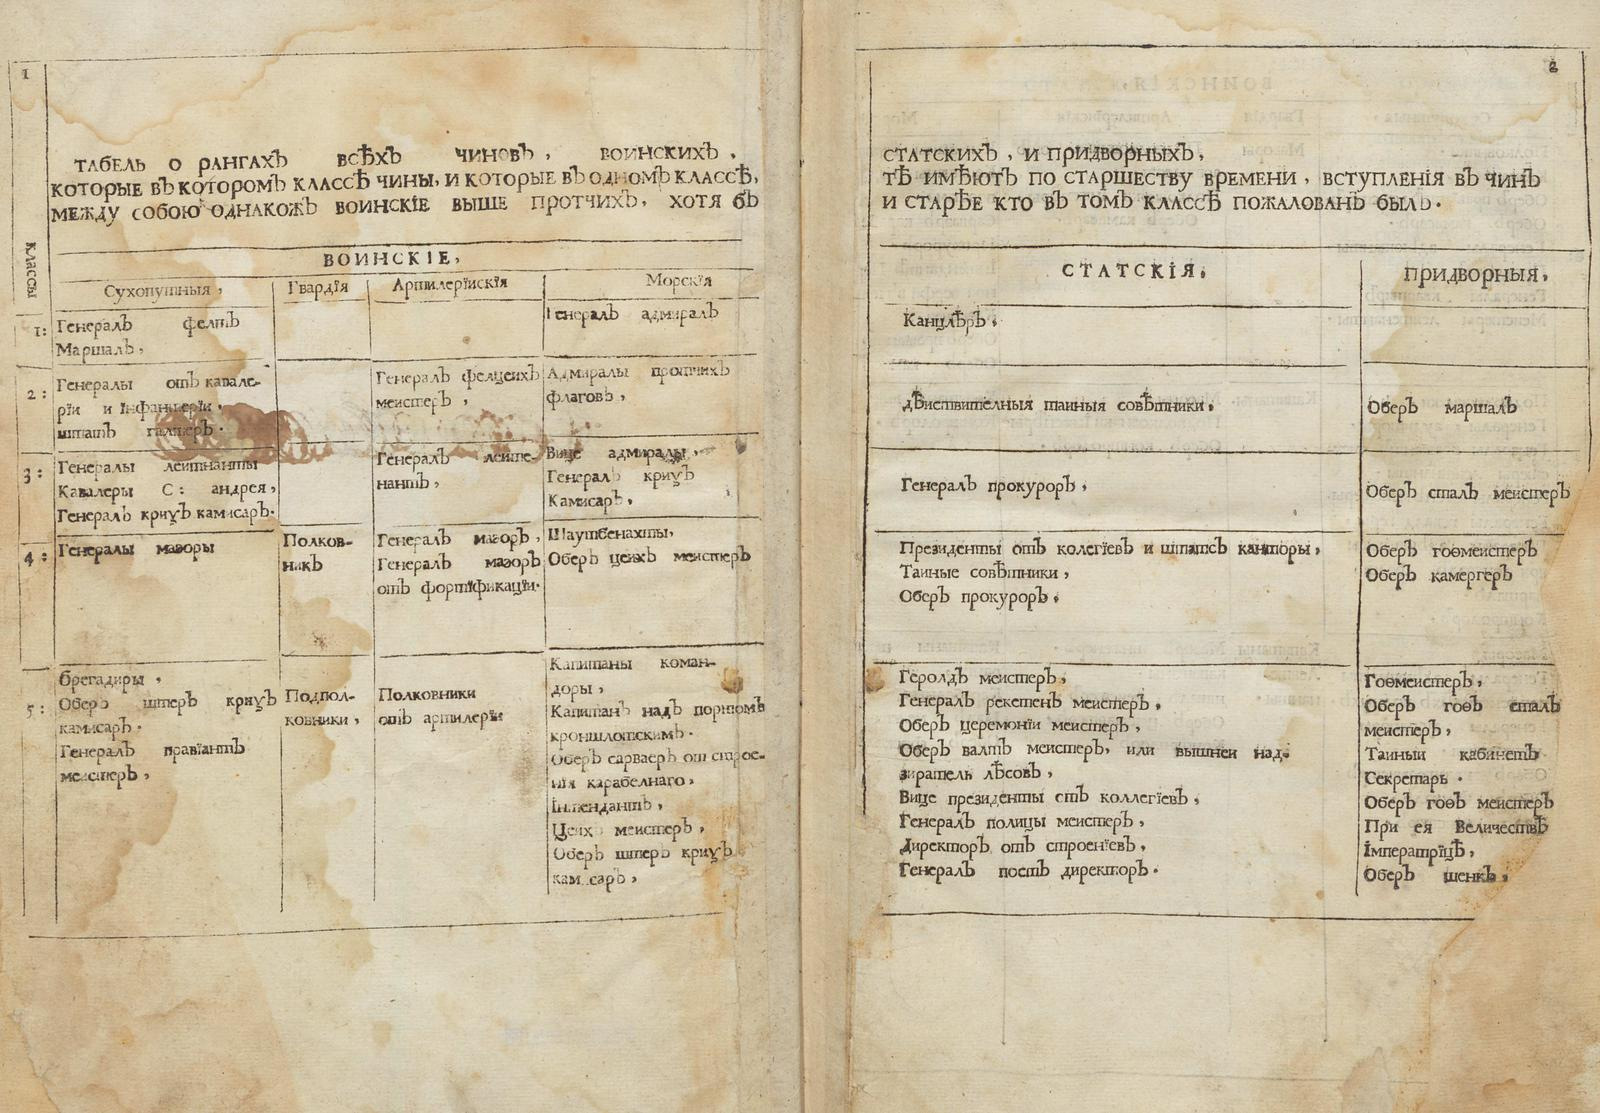 1
ТАБЕЛЬ О РАНГАХЪ ВСѢХЪ ЧИНОВЪ, ВОИНСКИХЪ,
КОТОРЫЕ ВЪ КОТОРОМЪ КЛАССѢ ЧИНЫ, И КОТОРЫЕ ВЪ ОДНОМЪ КЛАССѢ,
МЕЖДУ СОБОЮ ОДНАКОЖЪ ВОИНСКІЕ ВЫШЕ ПРОТЧИХЪ, ХОТЯ БЪ
КЛАССЫ
ВОИНСКІЕ,
Сухопутныя, Гвардїя Артилерїискія Морскїя
1: Генералъ фелтъ
Маршалъ,
Генералъ адмиралъ
2: Генералы отъ кавале-
рїи и інфантерїи,
штатъ галтеръ.
Генералъ фелцеихъ
меистеръ,
Адмиралы протчихъ
флаговъ,
3: Генералы леитнанты
Кавалеры С: андрея,
Генералъ кригъ камисаръ.
Генералъ леите-
нантъ,
Вице адмиралы,
Генералъ кригъ
Камисаръ,
4: Генералы маѳоры
Полков-
никъ
Генералъ маѳоръ,
Генералъ маѳоръ
отъ фортификаціи.
Шаутбенахты,
Оберъ цеихъ меистеръ
5: брегадиры,
Оберъ штеръ кригъ
камисаръ.
Генералъ правїантъ
меистеръ,
Подпол-
ковники,
Полковники
отъ артилерїи
Капитаны коман-
доры,
Капитанъ надъ портомъ
кроншлотскимъ.
Оберъ сарваеръ от строе-
нїя карабелнаго,
Інтендантъ,
Цеихъ меистеръ,
Оберъ штеръ кригъ
камісаръ,
2
СТАТСКИХЪ, И ПРИДВОРНЫХЪ,
ТѢ ИМѢЮТЪ ПО СТАРШЕСТВУ ВРЕМЕНИ, ВСТУПЛЕНІЯ ВЪ ЧИНЪ
И СТАРѢЕ КТО ВЪ ТОМЪ КЛАССѢ ПОЖАЛОВАНЪ БЫЛЪ.
СТАТСКІЯ, ПРИДВОРНЫЯ,
Канцлѣръ,
дѣиствителныя таиныя совѣтники,
Оберъ маршалъ
Генералъ прокуроръ,
Оберъ сталъ меистеръ
Президенты отъ колегїевъ и штатсъ канторы,
Таиные совѣтники,
Оберъ прокуроръ,
Оберъ гоѳмеистеръ
Оберъ камергеръ
Геролдъ меистеръ,
Генералъ рекетенъ меистеръ,
Оберъ церемонїи меистеръ,
Оберъ валтъ меистеръ, или вышнеи над-
зиратель лѣсовъ,
Вице президенты отъ коллегїевъ,
Генералъ полицы меистеръ,
Директоръ отъ строенїевъ,
Генералъ постъ директоръ.
Гоѳмеистеръ,
Оберъ гоѳъ сталъ
меистеръ,
Таиныи кабинетъ
Секретарь.
Оберъ гоѳъ меистеръ
При ея Величествѣ
Імператрїцѣ,
Оберъ шенкъ,